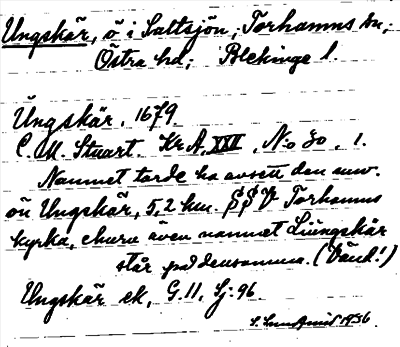 Ungskär, ö i Saltsjön; Torhamns sn;
Östra hd; Blekinge l.
Ungskär, 1679
C. M. Stuart. Kr. A, XXI, No 30, 1.
Namnet torde ha avsett den nuv.
ön Ungskär, 5,2 km. SSV Torhamns
kyrka, ehuru även namnet Liungskär
står på densamma. (Vänd!)
Ungskär ek, G. 11, Sj: 96
1936